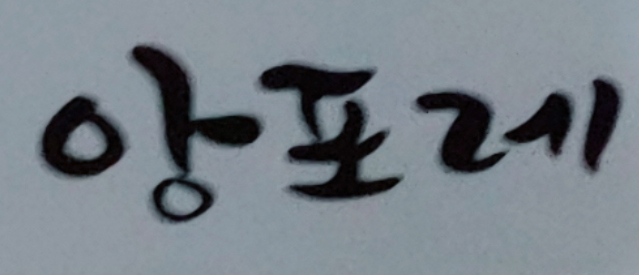 앙포레